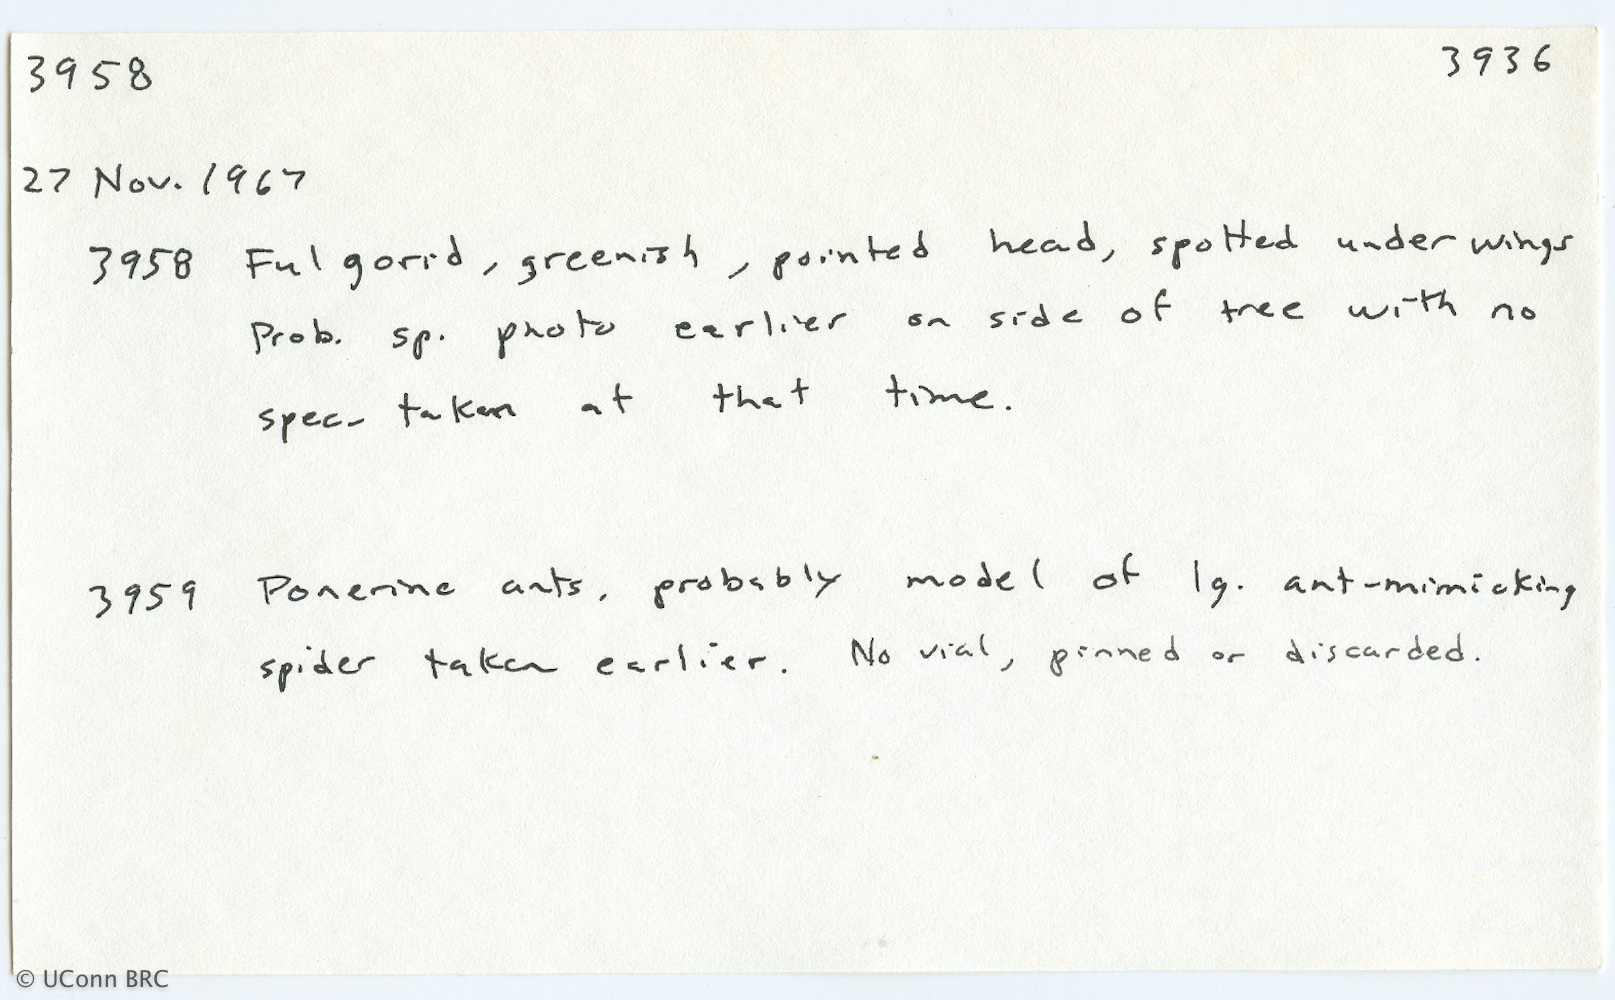 3958 3936
27 Nov. 1967
3958 Fulgorid, greenish, pointed head, spotted under wings
Prob. sp. photo earlier on side of tree with no
spec. taken at that time.
3959 Ponerine ants, probably model of lg. ant-mimicking
spider taken earlier. No vial, pinned or discarded.
© UConn BRC